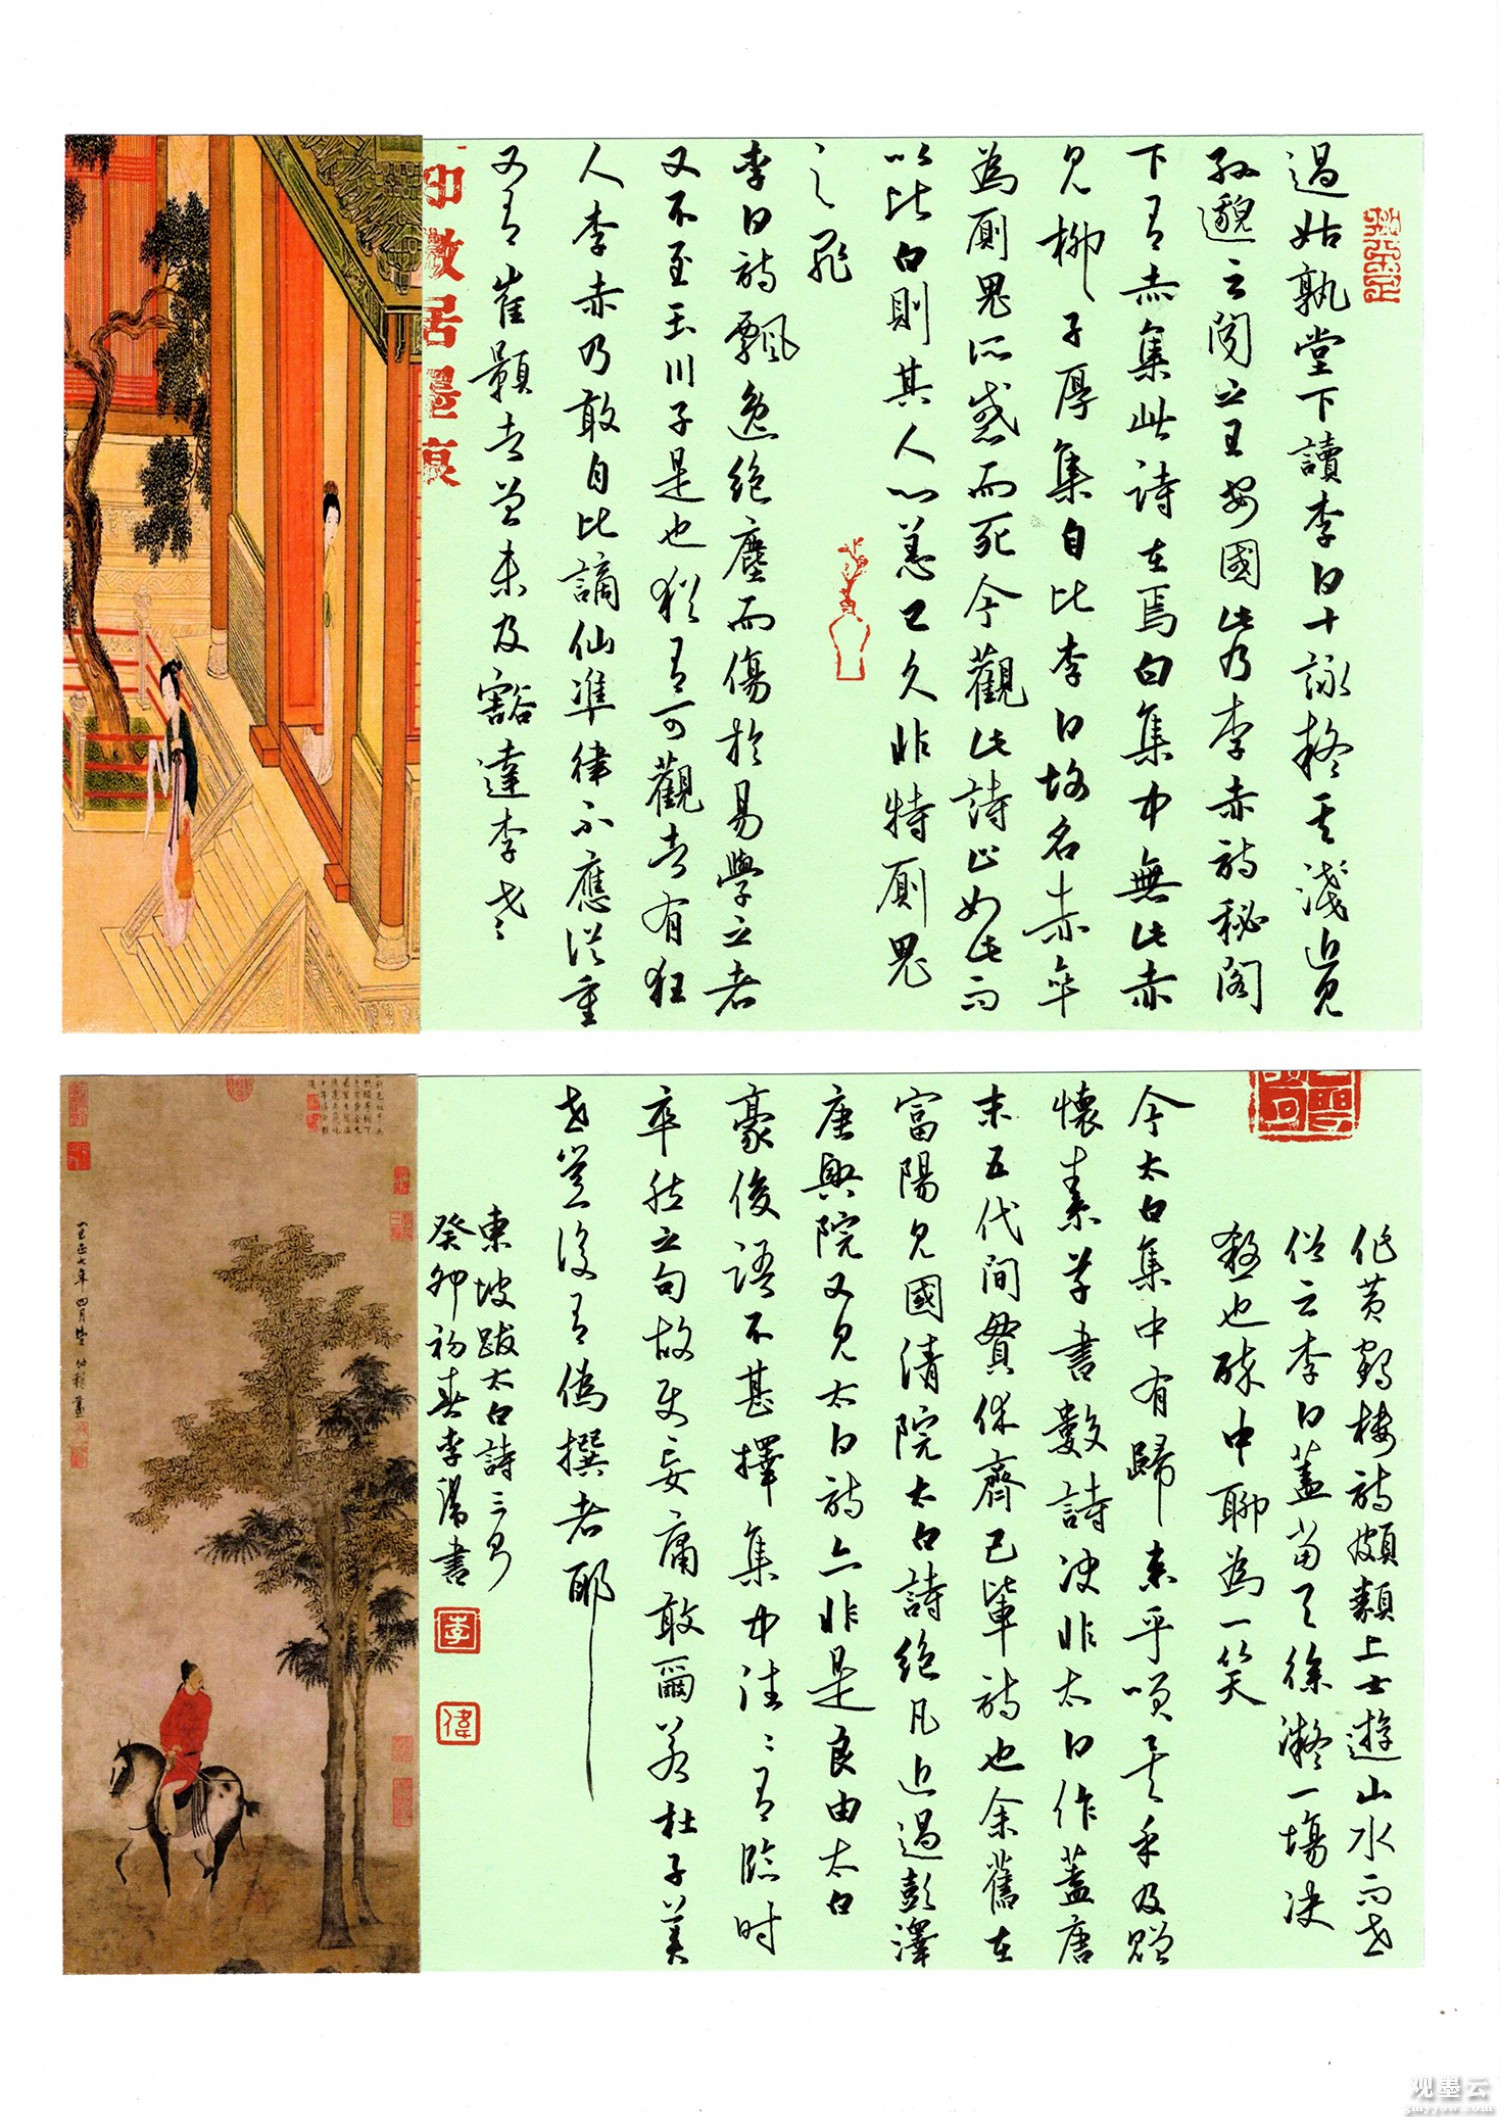 過姑孰堂下讀李白十詠疑其淺近見
孫邈云聞之王安國此乃李赤詩秘閣
下有赤集此詩在焉白集中無此赤
見柳子厚集自比李白故名赤卒
為厠鬼所惑而死今觀此詩止如此而
以比白則其人心恙已久非特厠鬼
之罪
李白詩飄逸絕塵而傷於易學之者
又不至玉川子是也猶有可觀者有狂
人李赤乃敢自比謫仙準律不應從重
又有崔顥者曾未及豁達李老
作黃鶴樓詩頗類上士遊山水而世
俗云李白蓋當與徐凝一場決
殺也醉中聊為一笑
今太白集中有歸來乎笑矣乎及贈
懷素草書數詩決非太白作蓋唐
末五代間貫休齊己輩詩也余舊在
富陽見國清院太白詩絕凡近過彭澤
唐興院又見太白詩亦非是良由太白
豪俊語不甚擇集中往往有臨時
率然之句故使妄庸敢爾若杜子美
世豈復有偽撰者耶
東坡跋太白詩三則
癸卯初春李偉書
李
偉
印數居墨痕
观墨云
gmyyow.com